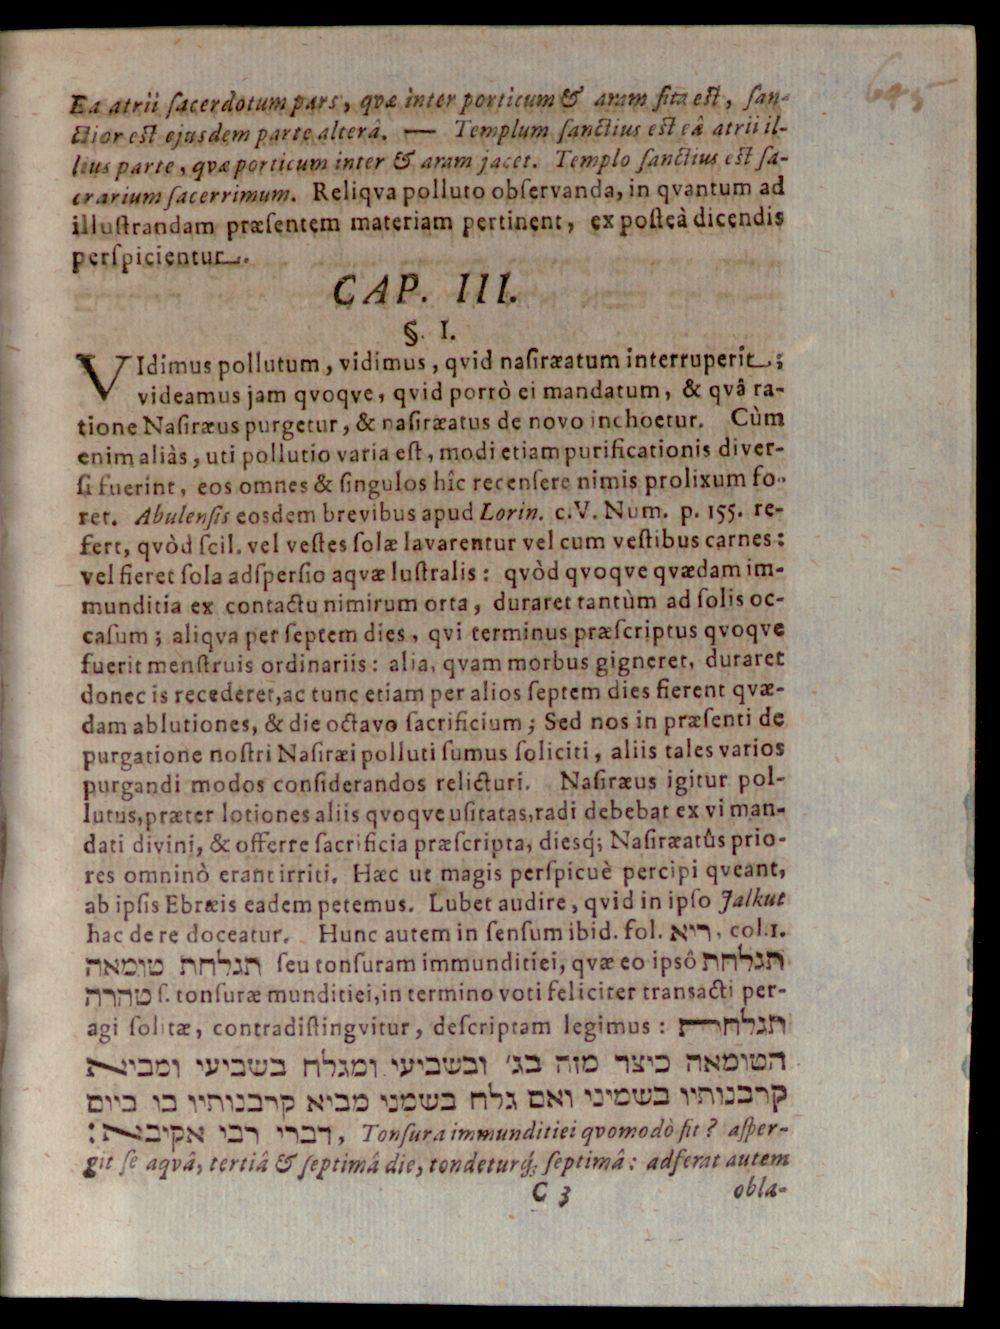 645
Ea atrii ſacerdotum pars, qvæ inter porticum & aram ſita eſt, ſan-
ctior eſt ejusdem parte alterâ. — Templum ſanctius eſt eâ atrii il-
lius parte, qvæ porticum inter & aram jacet. Templo ſanctius eſt ſa-
crarium ſacerrimum. Reliqva polluto obſervanda, in qvantum ad
illuſtrandam præſentem materiam pertinent, ex poſteà dicendis
perſpicientur.
CAP. III.
§. I.
VIdimus pollutum, vidimus, qvid naſiræatum interruperit;
videamus jam qvoqve, qvid porrò ei mandatum, & qvâ ra-
tione Naſiræus purgetur, & naſiræatus de novo inchoetur. Cùm
enim aliàs, uti pollutio varia eſt, modi etiam purificationis diver-
ſi fuerint, eos omnes & ſingulos hîc recenſere nimis prolixum fo-
ret. Abulenſis eosdem brevibus apud Lorin. c.V. Num. p. 155. re-
fert, qvòd ſcil. vel veſtes ſolæ lavarentur vel cum veſtibus carnes:
vel fieret ſola adſperſio aqvæ luſtralis: qvòd qvoqve qvædam im-
munditia ex contactu nimirum orta, duraret tantùm ad ſolis oc-
caſum; aliqva per ſeptem dies, qvi terminus præſcriptus qvoqve
fuerit menſtruis ordinariis: alia, qvam morbus gigneret, duraret
donec is recederet, ac tunc etiam per alios ſeptem dies fierent qvæ-
dam ablutiones, & die octavo ſacrificium; Sed nos in præſenti de
purgatione noſtri Naſiræi polluti ſumus ſoliciti, aliis tales varios
purgandi modos conſiderandos relicturi. Naſiræus igitur pol-
lutus, præter lotiones aliis qvoqve uſitatas, radi debebat ex vi man-
dati divini, & offerre ſacrificia præſcripta, diesq́; Naſiræatûs prio-
res omninò erant irriti. Hæc ut magis perſpicuè percipi qveant,
ab ipſis Ebræis eadem petemus. Lubet audire, qvid in ipſo Jalkut
hac de re doceatur. Hunc autem in ſenſum ibid. fol. ריא, col.1.
תגלחת טומאה ſeu tonſuram immunditiei, qvæ eo ipſô תגלחת
טהרה ſ. tonſuræ munditiei, in termino voti feliciter transacti per-
agi ſolitæ, contradiſtingvitur, deſcriptam legimus: תגלחת
הטומאה כיצד מזה בג׳ ובשביעי ומגלח בשביעי ומביא
קרבנותיו בשמיני ואם גלח בשמני מביא קרבנותיו בו ביום
דברי רבי אקיבא:, Tonſura immunditiei qvomodò fit? aſper-
git ſe aqvâ, tertiâ & ſeptimâ die, tondeturq́; ſeptimâ: adferat autem
C 3 obla-